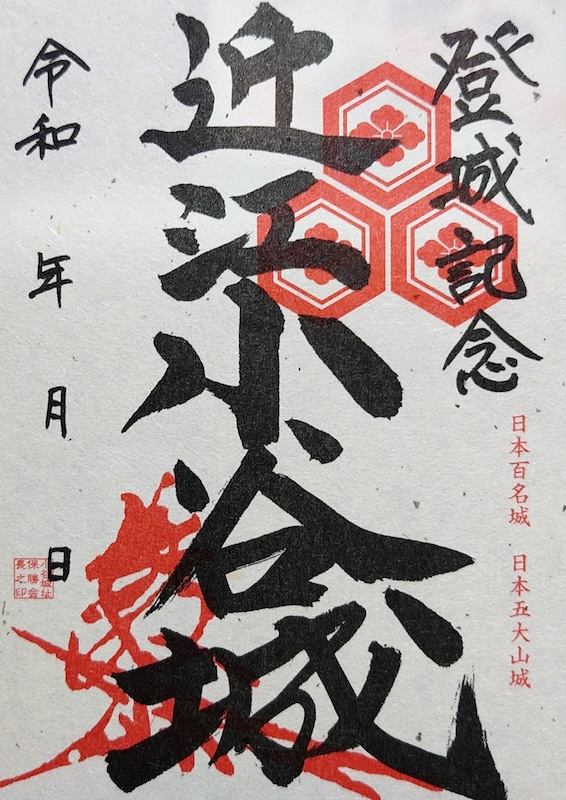 登城記念
日本百名城 日本五大山城
近江小谷城
令和 年 月 日
小谷城址
保勝会
長之印